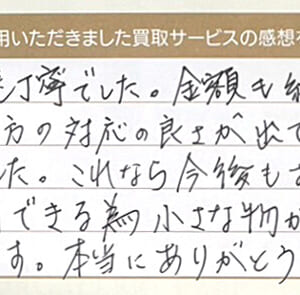 用いただきました買取サービスの感想を
丁寧でした。金額も
方の対応の良さが出て
た。これなら今後もお
できる為小さな物が
す。本当にありがとう